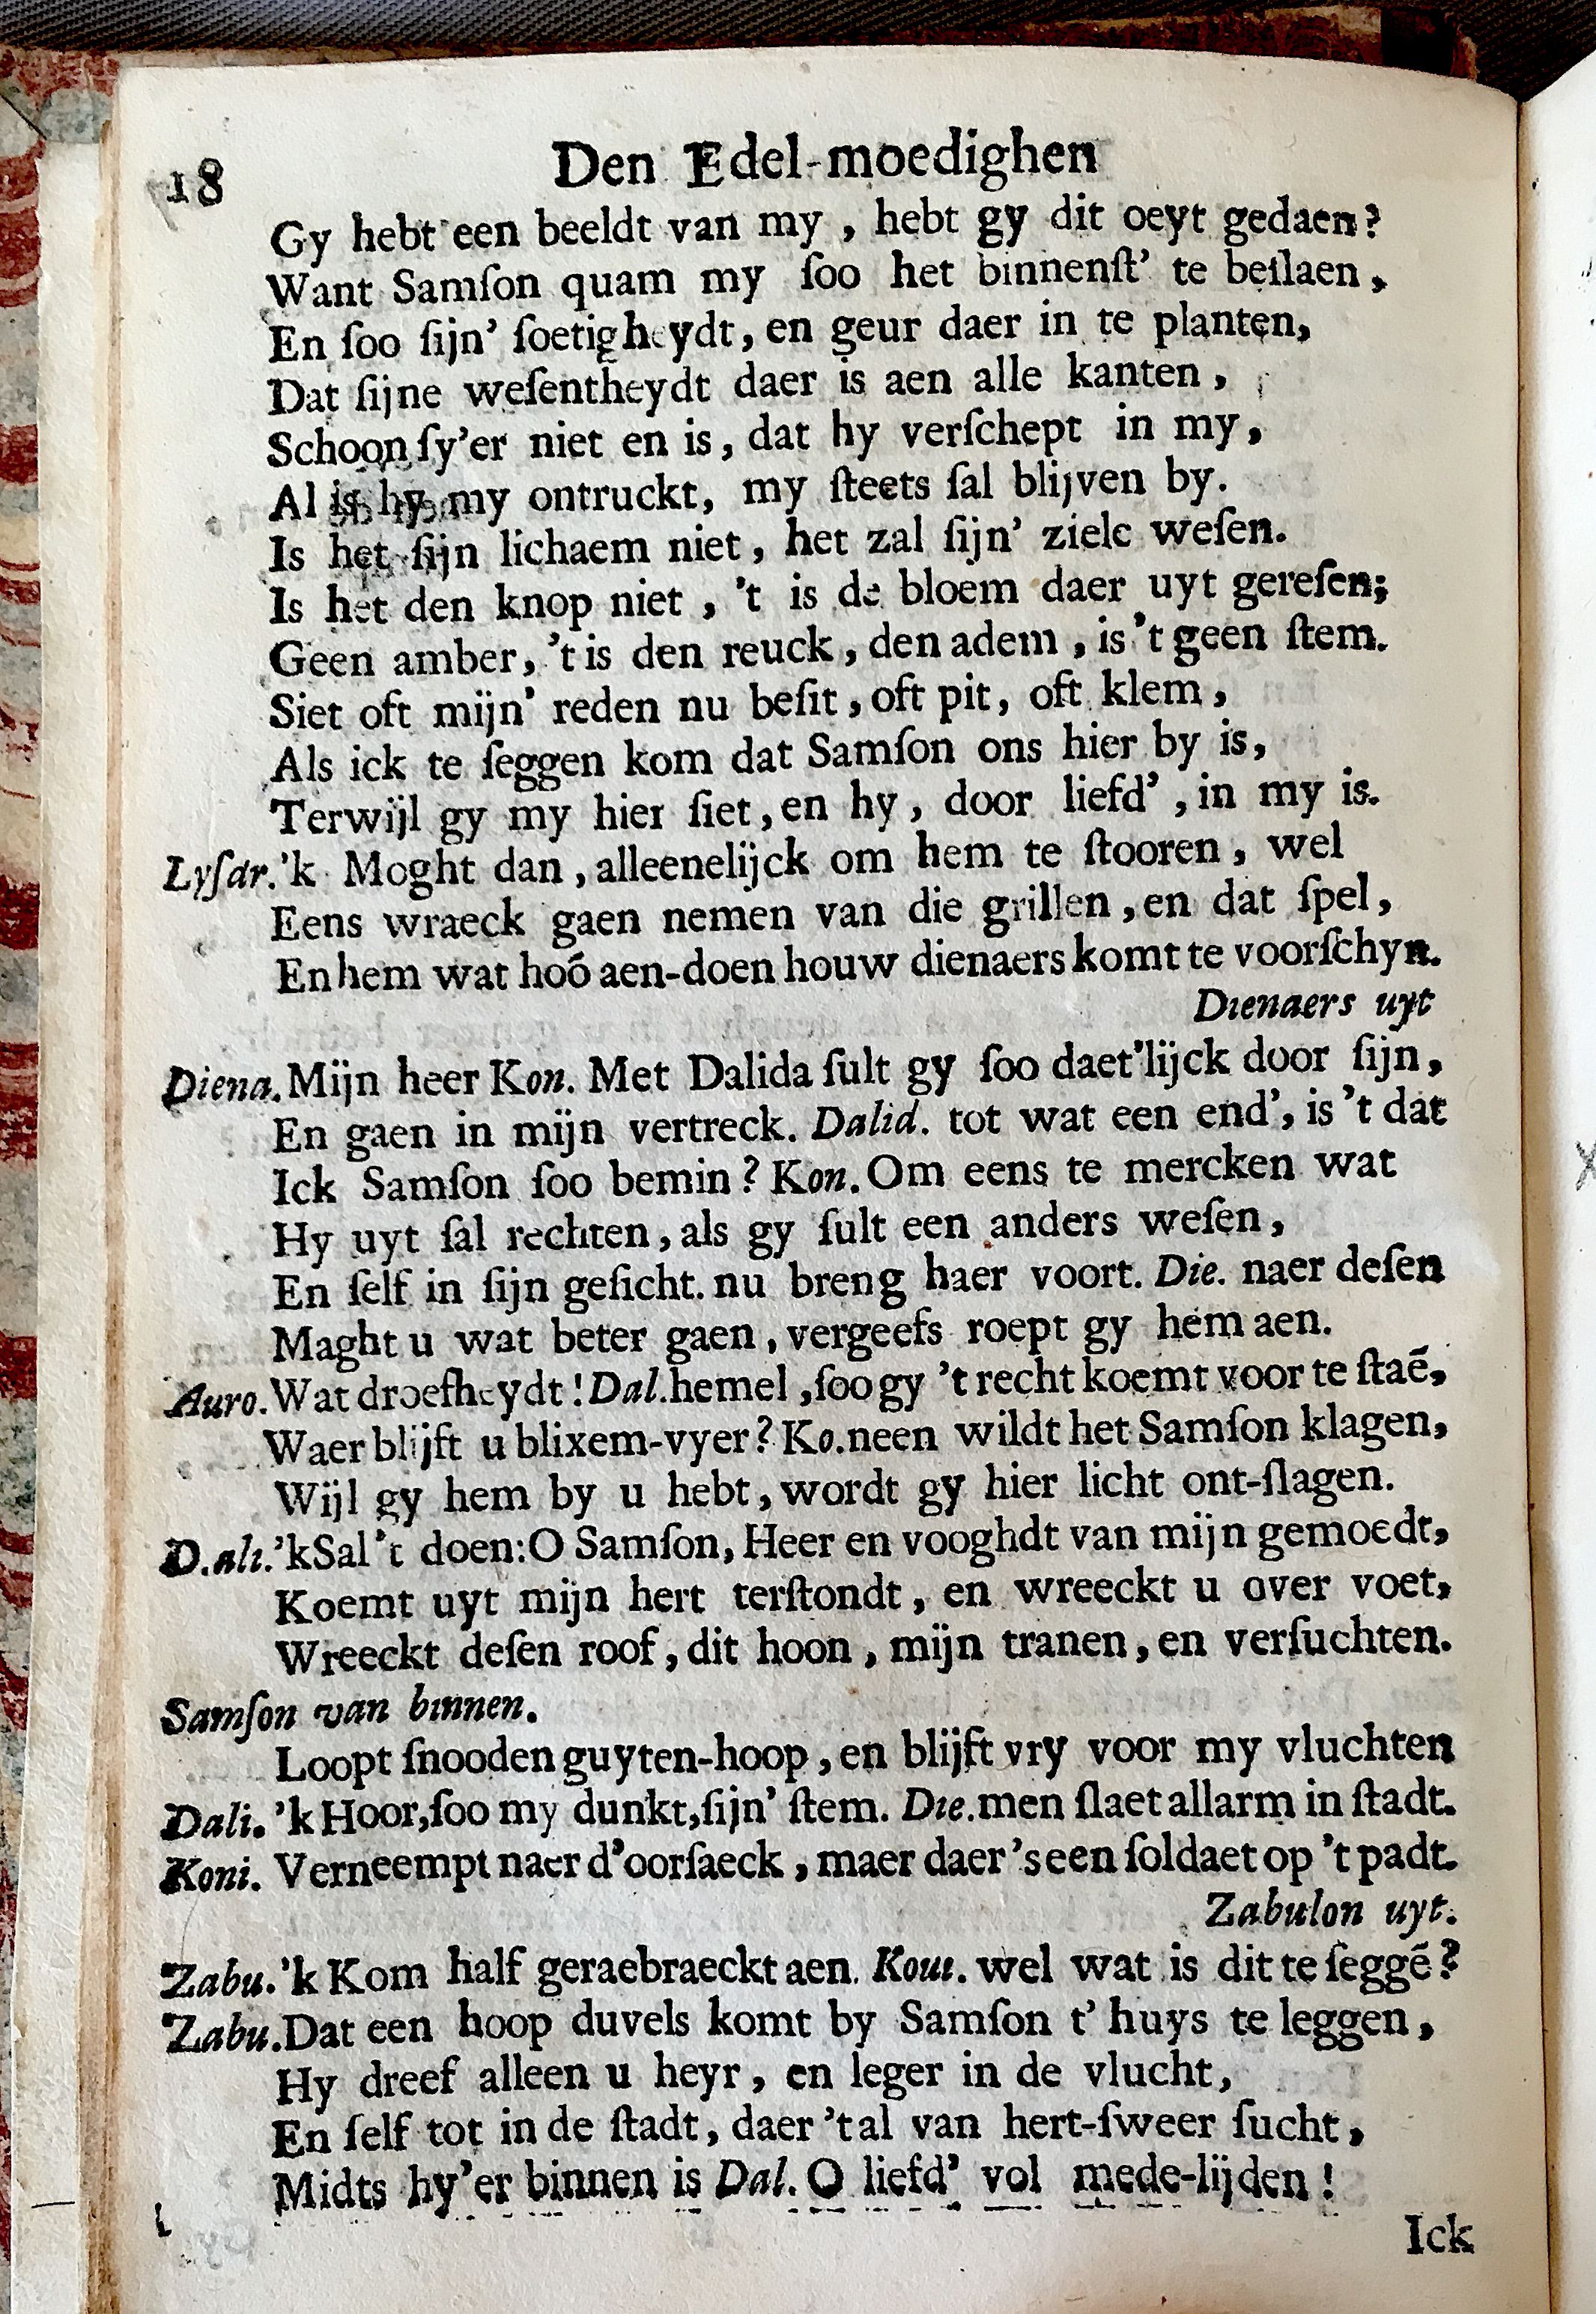 18 Den Edel-moedighen
Gy hebt een beeldt van my , hebt gy dit oeyt gedaen?
Want Samſon quam my ſoo het binnenſt' te beſlaen,
En ſoo ſijn' ſoetigheydt, en geur daer in te planten,
Dat ſijne weſentheydt daer is aen alle kanten,
Schoon ſy'er niet en is, dat hy verſchept in my,
Al is hy my ontruckt, my ſteets ſal blijven by.
Is het ſijn lichaem niet, het zal ſijn' ziele weſen.
Is het den knop niet , 't is de bloem daer uyt gereſen;
Geen amber, 't is den reuck, den adem, is 't geen ſtem.
Siet oft mijn' reden nu beſit, oft pit, oft klem,
Als ick te ſeggen kom dat Samſon ons hier by is,
Terwijl gy my hier ſiet, en hy, door liefd', in my is.
Lyſar. 'k Moght dan, alleenelijck om hem te ſtooren, wel
Eens wraeck gaen nemen van die grillen, en dat ſpel,
En hem wat hoõ aen-doen houw dienaers komt te voorſchyn.
Dienaers uyt
Diena. Mijn heer Kon. Met Dalida ſult gy ſoo daet'lijck door ſijn,
En gaen in mijn vertreck. Dalid. tot wat een end', is 't dat
Ick Samſon ſoo bemin? Kon. Om eens te mercken wat
Hy uyt ſal rechten, als gy ſult een anders weſen,
En ſelf in ſijn geſicht. nu breng haer voort. Die. naer deſen
Maght u wat beter gaen, vergeefs roept gy hem aen.
Auro. Wat droefheydt! Dal. hemel, ſoo gy 't recht koemt voor te ſtaẽ,
Waer blijft u blixem-vyer? Ko. neen wildt het Samſon klagen,
Wijl gy hem by u hebt, wordt gy hier licht ont-ſlagen.
D.ali. 'k Sal 't doen: O Samſon, Heer en vooghdt van mijn gemoedt,
Koemt uyt mijn hert terſtondt, en wreeckt u over voet,
Wreeckt deſen roof, dit hoon, mijn tranen, en verſuchten.
Samſon van binnen.
Loopt ſnooden guyten-hoop, en blijft vry voor my vluchten
Dali. 'k Hoor, ſoo my dunkt, ſijn' ſtem. Die. men ſlaet allarm in ſtadt.
Koni. Verneempt naer d'oorſaeck, maer daer 's een ſoldaet op 't padt.
Zabulon uyt.
Zabu. 'k Kom half geraebraeckt aen. Kom. wel wat is dit te ſeggẽ?
Zabu. Dat een hoop duvels komt by Samſon t' huys te leggen,
Hy dreef alleen u heyr, en leger in de vlucht,
En ſelf tot in de ſtadt, daer 't al van hert-ſweer ſucht,
Midts hy'er binnen is Dal. O liefd' vol mede-lijden!
Ick